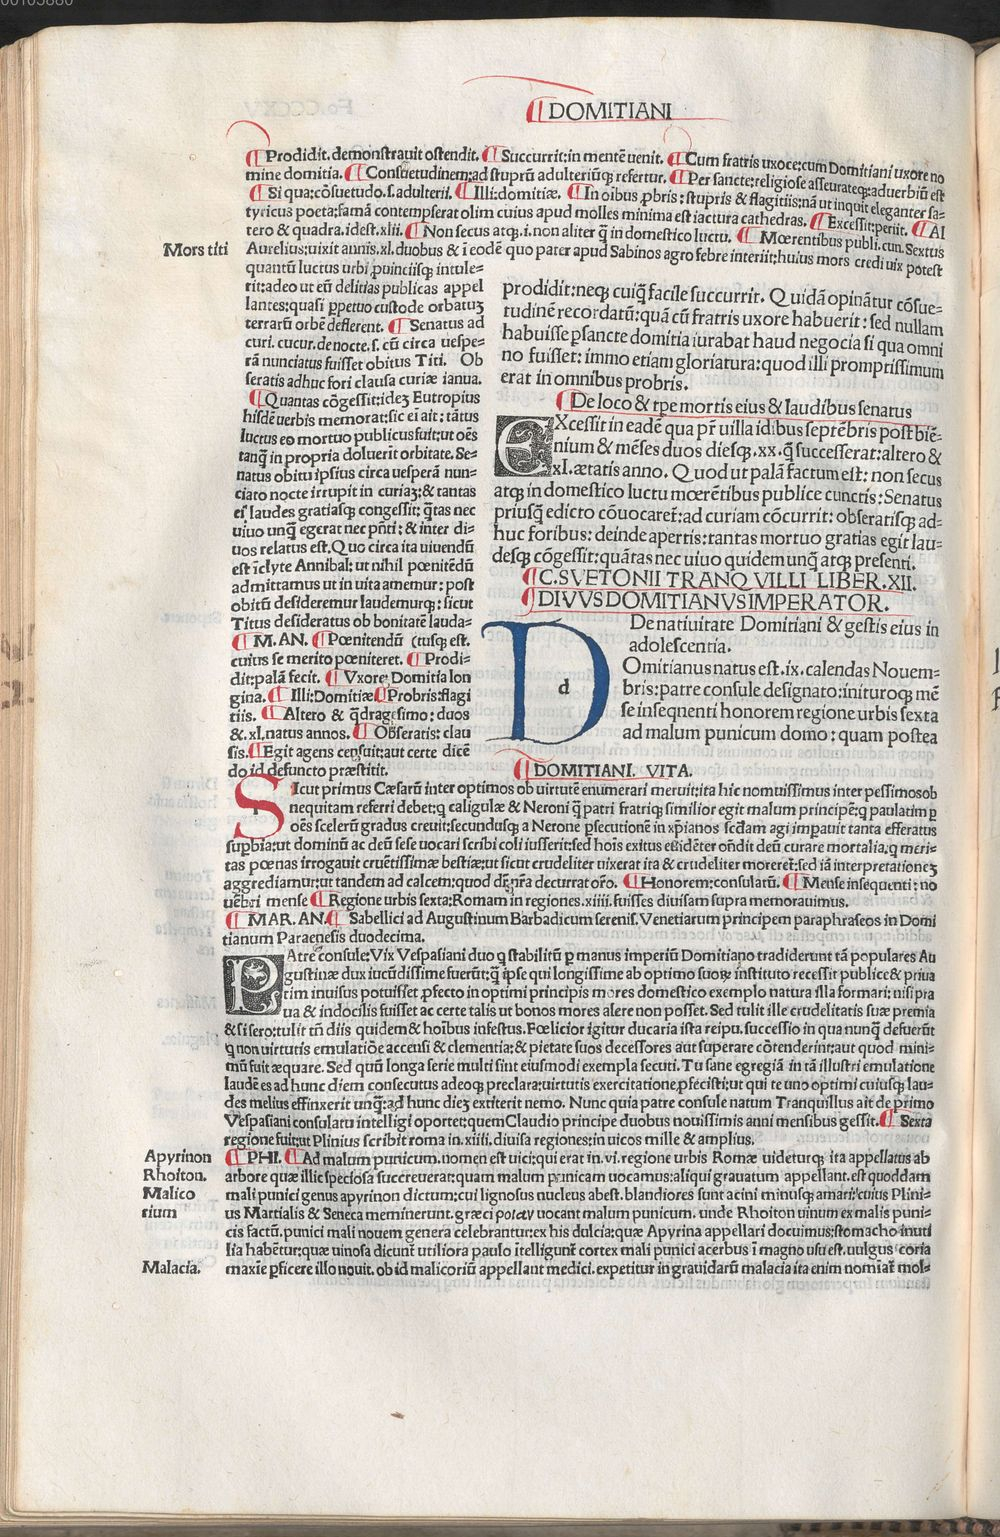 DOMITIANI
¶ Prodidit. demonstrauit ostendit. ¶ Succurrit: in mentē uenit. ¶ Cum fratris uxoce: cum Domitiani uxore no
mine domitia. ¶ Consuetudinem: ad stuprū adulteriūq; refertur. ¶ Per sancte: religiose asseurateq;: aduerbiū est
¶ Si qua: cōsuetudo. s. adulterii. ¶ Illi: domitiæ. ¶ In oībus p̱bris: stupris & flagitiis: nā ut inquit eleganter sa=
tyricus poeta: famā contempserat olim cuius apud molles minima est iactura cathedras. ¶ Excessit: periit. ¶ Al
tero & quadra. idest. xlii. ¶ Non secus atq;. i. non aliter q̄ in domestico luctu. ¶ Mœrentibus publi. cun. Sextus
Mors titi
Aurelius: uixit annis. xl. duobus & ī eodē quo pater apud Sabinos agro febre interiit: huius mors credi uix potest
quantū luctus urbi ,puinciisq; intule=
rit: adeo ut eū delitias publicas appel
lantes: quasi p̱petuo custode orbatuʒ
terrarū orbē deflerent. ¶ Senatus ad
curi. cucur. de nocte. s. cū circa uespe=
rā nunciatus fuisset obitus Titi. Ob
seratis adhuc fori clausa curiæ ianua.
¶ Quantas cōgessit: ideʒ Eutropius
hisdē uerbis memorat: sic ei ait: tātus
luctus eo mortuo publicus fuit: ut oēs
tanq̄ in propria doluerit orbitate. Se=
natus obitu ipsius circa uesperā nun=
ciato nocte irrupit in curiaʒ: & tantas
ei laudes gratiasq; congessit: q̄tas nec
uiuo unq̄ egerat nec pn̄ti: & inter di=
uos relatus est. Quo circa ita uiuendū
est īclyte Annibal: ut nihil pœnitēdū
admittamus ut in uita amemur: post
obitū desideremur laudemurq;: sicut
Titus desideratus ob bonitatē lauda=
¶ M. AN. ¶ Pœnitendū (tusq; est.
cuius se merito pœniteret. ¶ Prodi=
dit: palā fecit. ¶ Vxore: Domitia lon
gina. ¶ Illi: Domitiæ ¶ Probris: flagi
tiis. ¶ Altero & q̄dragesimo: duos
&. xl. natus annos. ¶ Obseratis: clau
sis. ¶ Egit agens censuit: aut certe dicē
do id defuncto præstitit.
prodidit: neq; cuiq̄ facile succurrit. Quidā opinātur cōsue=
tudinē recordatū: quā cū fratris uxore habuerit: sed nullam
habuisse p̱sancte domitia iurabat haud negocia si qua omni
no fuisset: immo etiam gloriatura: quod illi promptissimum
erat in omnibus probris.
¶ De loco & tp̄e mortis eius & laudibus senatus
EXcessit in eadē qua pr̄ uilla idibus septēbris post biē=
nium & mēses duos diesq;. xx. q̄ successerat: altero &
xl. ætatis anno. Quod ut palā factum est: non secus
atq; in domestico luctu mœrētibus publice cunctis: Senatus
priusq̄ edicto cōuocaret: ad curiam cōcurrit: obseratisq; ad=
huc foribus: deinde apertis: tantas mortuo gratias egit lau=
desq; cōgessit: quātas nec uiuo quidem unq̄ atq; presenti.
¶ C. SVETONII TRANQVILLI LIBER. XII.
¶ DIVVS DOMITIANVS IMPERATOR.
De natiuitate Domitiani & gestis eius in
adolescentia.
D d Omitianus natus est. ix. calendas Nouem=
bris: patre consule designato: inituroq; mē
se insequenti honorem regione urbis sexta
ad malum punicum domo: quam postea
¶ DOMITIANI. VITA.
SIcut primus Cæsarū inter optimos ob uirtutē enumerari meruit: ita hic nouissimus inter pessimos ob
nequitam referri debet: q; caligulæ & Neroni q̄ patri fratriq; similior egit malum principē: q; paulatim p̱
oēs scelerū gradus creuit: secundusq; a Nerone p̱secutionē in xp̄ianos scđam agi impauit tanta efferatus
sup̱bia: ut dominū ac deū sese uocari scribi coli iusserit: sed hoīs exitus euidēter oñdit deū curare mortalia: q; meri=
tas pœnas irrogauit cruētissimæ bestiæ: ut sicut crudeliter uixerat ita & crudeliter moreret: sed iā interpretationeʒ
aggrediamur: ut tandem ad calcem: quod dr̄ nr̄a decurrat orō. ¶ Honorem: consulatū. ¶ Mense insequenti: no
uēbri mense ¶ Regione urbis sexta: Romam in regiones. xiiii. fuisses diuisam supra memorauimus.
¶ MAR. AN. ¶ Sabellici ad Augustinum Barbadicum serenis. Venetiarum principem paraphraseos in Domi
tianum Paraenesis duodecima.
PAtre consule: Vix Vespasiani duo q; stabilitū p̱ manus imperiū Domitiano tradiderunt tā populares Au
gustinæ dux iucūdissime fuerūt: q̄ ipse qui longissime ab optimo suoꝝ instituto recessit publice & priua
tim inuisus potuisset ,pfecto in optimi principis mores domestico exemplo natura illa formari: nisi pra
ua & indocilis fuisset ac certe talis ut bonos mores alere non posset. Sed tulit ille crudelitatis suæ premia
& si sero: tulit tn̄ diis quidem & hoībus infestus. Fœlicior igitur ducaria ista reipu. successio in qua nunq̄ defuerūt
q; non uirtutis emulatiōe accensi & clementia: & pietate suos decessores aut superare cōtenderint: aut quod mini=
mū fuit æquare. Sed quū longa serie multi sint eiusmodi exempla secuti. Tu sane egregiā in tā illustri emulatione
laudē es ad hunc diem consecutus adeoq; preclara: uirtutis exercitatione ,pfecisti: ut qui te uno optimi cuiusq; lau=
des melius effinxerit unq̄: ad hunc dieʒ extiterit nemo. Nunc quia patre consule natum Tranquillus ait de primo
Vespasiani consulatu intelligi oportet: quem Claudio principe duobus nouissimis anni mensibus gessit. ¶ Sexta
regione fuit: ut Plinius scribit roma in. xiiii. diuisa regiones: in uicos mille & amplius.
Apyrinon
¶ PHI. ¶ Ad malum punicum. nomen est uici: qui erat in. vi. regione urbis Romæ uideturq; ita appellatus ab
Rhoiton.
arbore quæ illic speciosa succreuerat: quam malum punicam uocamus: aliqui grauatum appellant. est quoddam
Malico
mali punici genus apyrinon dictum: cui lignosus nucleus abest. blandiores sunt acini minusq; amari: cuius Plini=
rium
us Martialis & Seneca meminerunt. græci ροιαν uocant malum punicum. unde Rhoiton uinum ex malis puni=
cis factū. punici mali nouem genera celebrantur: ex his dulcia: quæ Apyrina appellari docuimus: stomacho inuti
lia habētur: quæ uinosa dicunt utiliora paulo ītelligunt cortex mali punici acerbus ī magno usu est. uulgus coria
Malacia.
maxīe p̱ficere illo nouit. ob id malicoriū appellant medici. expetitur in grauidarū malacia ita enim nomīat mol=